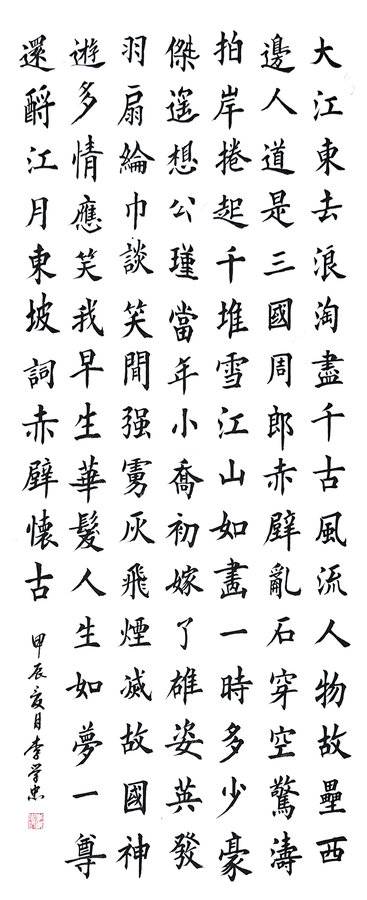 大江東去浪淘盡千古風流人物故壘西
邊人道是三國周郎赤壁亂石穿空驚濤
拍岸捲起千堆雪江山如畫一時多少豪
傑遥想公瑾當年小喬初嫁了雄姿英發
羽扇綸巾談笑間强虜灰飛煙滅故國神
遊多情應笑我早生華髮人生如夢一尊
還酹江月東坡詞赤壁懷古
甲辰夏月李学忠